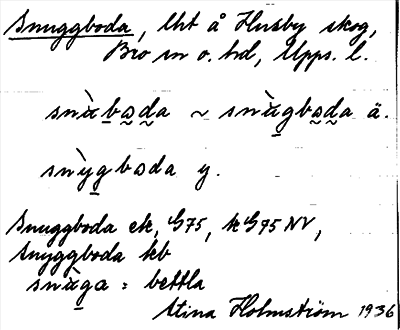 Snuggboda, lht å Husby skog,
Bro sn o. hd, Upps. l.
snùbəda ~ snùgbəda ä.
snỳgbəda y.
Snuggboda ek, G75, k G95 NV,
Snyggboda kb
snùga = bettla
Stina Holmström 1936